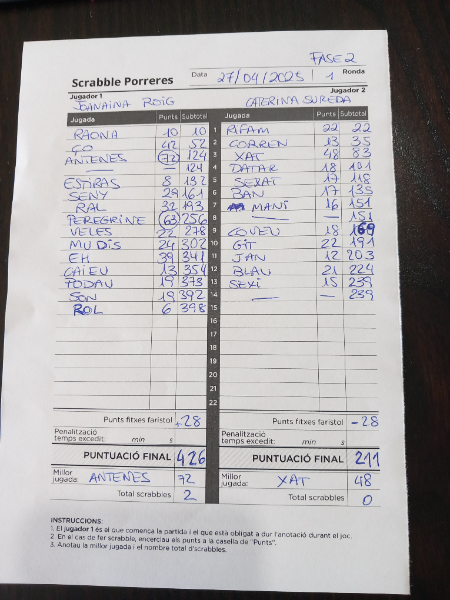 FASE 2
Scrabble Porreres Data 27/04/2025 1 Ronda
Jugador 1 Jugador 2
JOANAINA ROIG CATERINA SUREDA
Jugada Punts Subtotal Jugada Punts Subtotal
RAONA 10 10 1 RIFAM 22 22
ÇO 42 52 2 CORREN 13 35
ANTENES 72 124 3 XAT 48 83
— 124 4 DATAR 18 101
ESTIRAS 8 132 5 SEXAT 17 118
SENY 29 161 6 BAN 17 135
RAL 32 193 7 MANI 16 151
PEREGRINE 63 256 8 — 151
VELES 22 278 9 COVEU 18 169
MUDIS 24 302 10 GIT 22 191
EH 39 341 11 JAN 12 203
CAIEU 13 354 12 BLAU 21 224
PODAU 19 373 13 SEXI 15 239
SON 19 392 14 — 239
ROL 6 398 15
16
17
18
19
20
21
22
Punts fitxes faristol +28 Punts fitxes faristol -28
Penalització temps excedit: min s Penalització temps excedit: min s
PUNTUACIÓ FINAL 426 PUNTUACIÓ FINAL 211
Millor jugada: ANTENES 72 Millor jugada: XAT 48
Total scrabbles 2 Total scrabbles 0
INSTRUCCIONS:
1. El jugador 1 és el que comença la partida i el que està obligat a dur l'anotació durant el joc.
2. En el cas de fer scrabble, encerclau els punts a la casella de "Punts".
3. Anotau la millor jugada i el nombre total d'scrabbles.